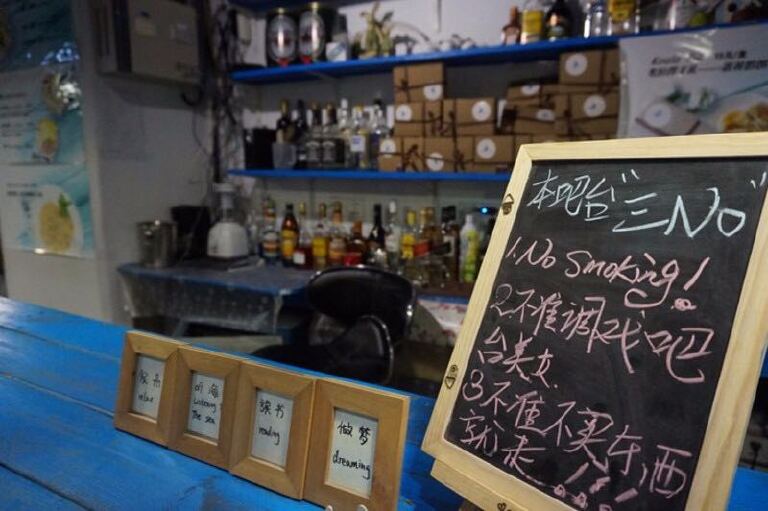 本吧台"三No"
1.No smoking!
2.不准调戏吧
台美女
3不准不买东西
就走...!!!
relax
听海
Listening
The sea
读书
reading
做梦
dreaming